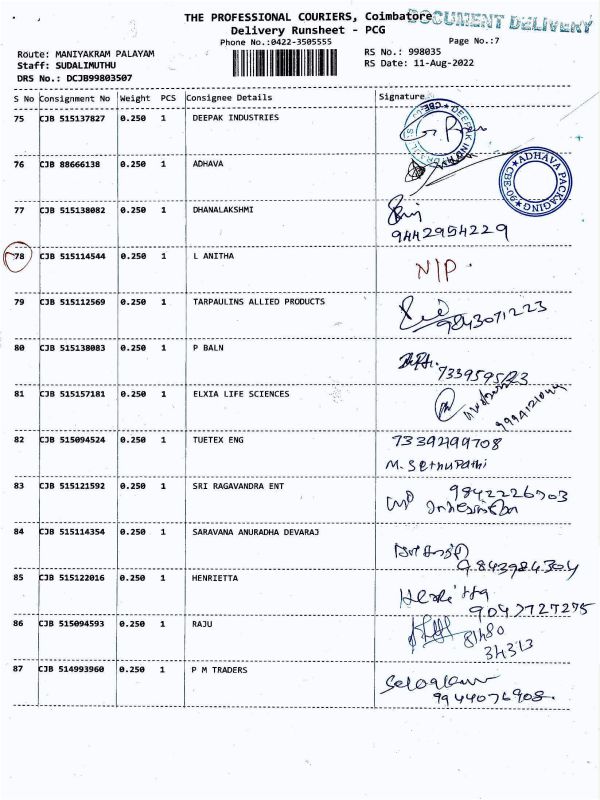 THE PROFESSIONAL COURIERS, Coimbatore
DOCUMENT DELIVERY
Delivery Runsheet - PCG
Phone No.:0422-3505555
Page No.:7
Route: MANIYAKRAM PALAYAM
RS No.: 998035
Staff: SUDALIMUTHU
RS Date: 11-Aug-2022
DRS No.: DCJB99803507
S No Consignment No Weight PCS Consignee Details Signature
75 CJB 515137827 0.250 1 DEEPAK INDUSTRIES
76 CJB 88666138 0.250 1 ADHAVA
ADHAVA PACKAGING
77 CJB 515138082 0.250 1 DHANALAKSHMI
9442954229
78 CJB 515114544 0.250 1 L ANITHA N/P.
79 CJB 515112569 0.250 1 TARPAULINS ALLIED PRODUCTS
9843071223
80 CJB 515138083 0.250 1 P BALN
81 CJB 515157181 0.250 1 ELXIA LIFE SCIENCES
82 CJB 515094524 0.250 1 TUETEX ENG
M. Sethupathi
83 CJB 515121592 0.250 1 SRI RAGAVANDRA ENT
84 CJB 515114354 0.250 1 SARAVANA ANURADHA DEVARAJ
9843984304
85 CJB 515122016 0.250 1 HENRIETTA
86 CJB 515094593 0.250 1 RAJU
81480
34313
87 CJB 514993960 0.250 1 P M TRADERS
9944076908.